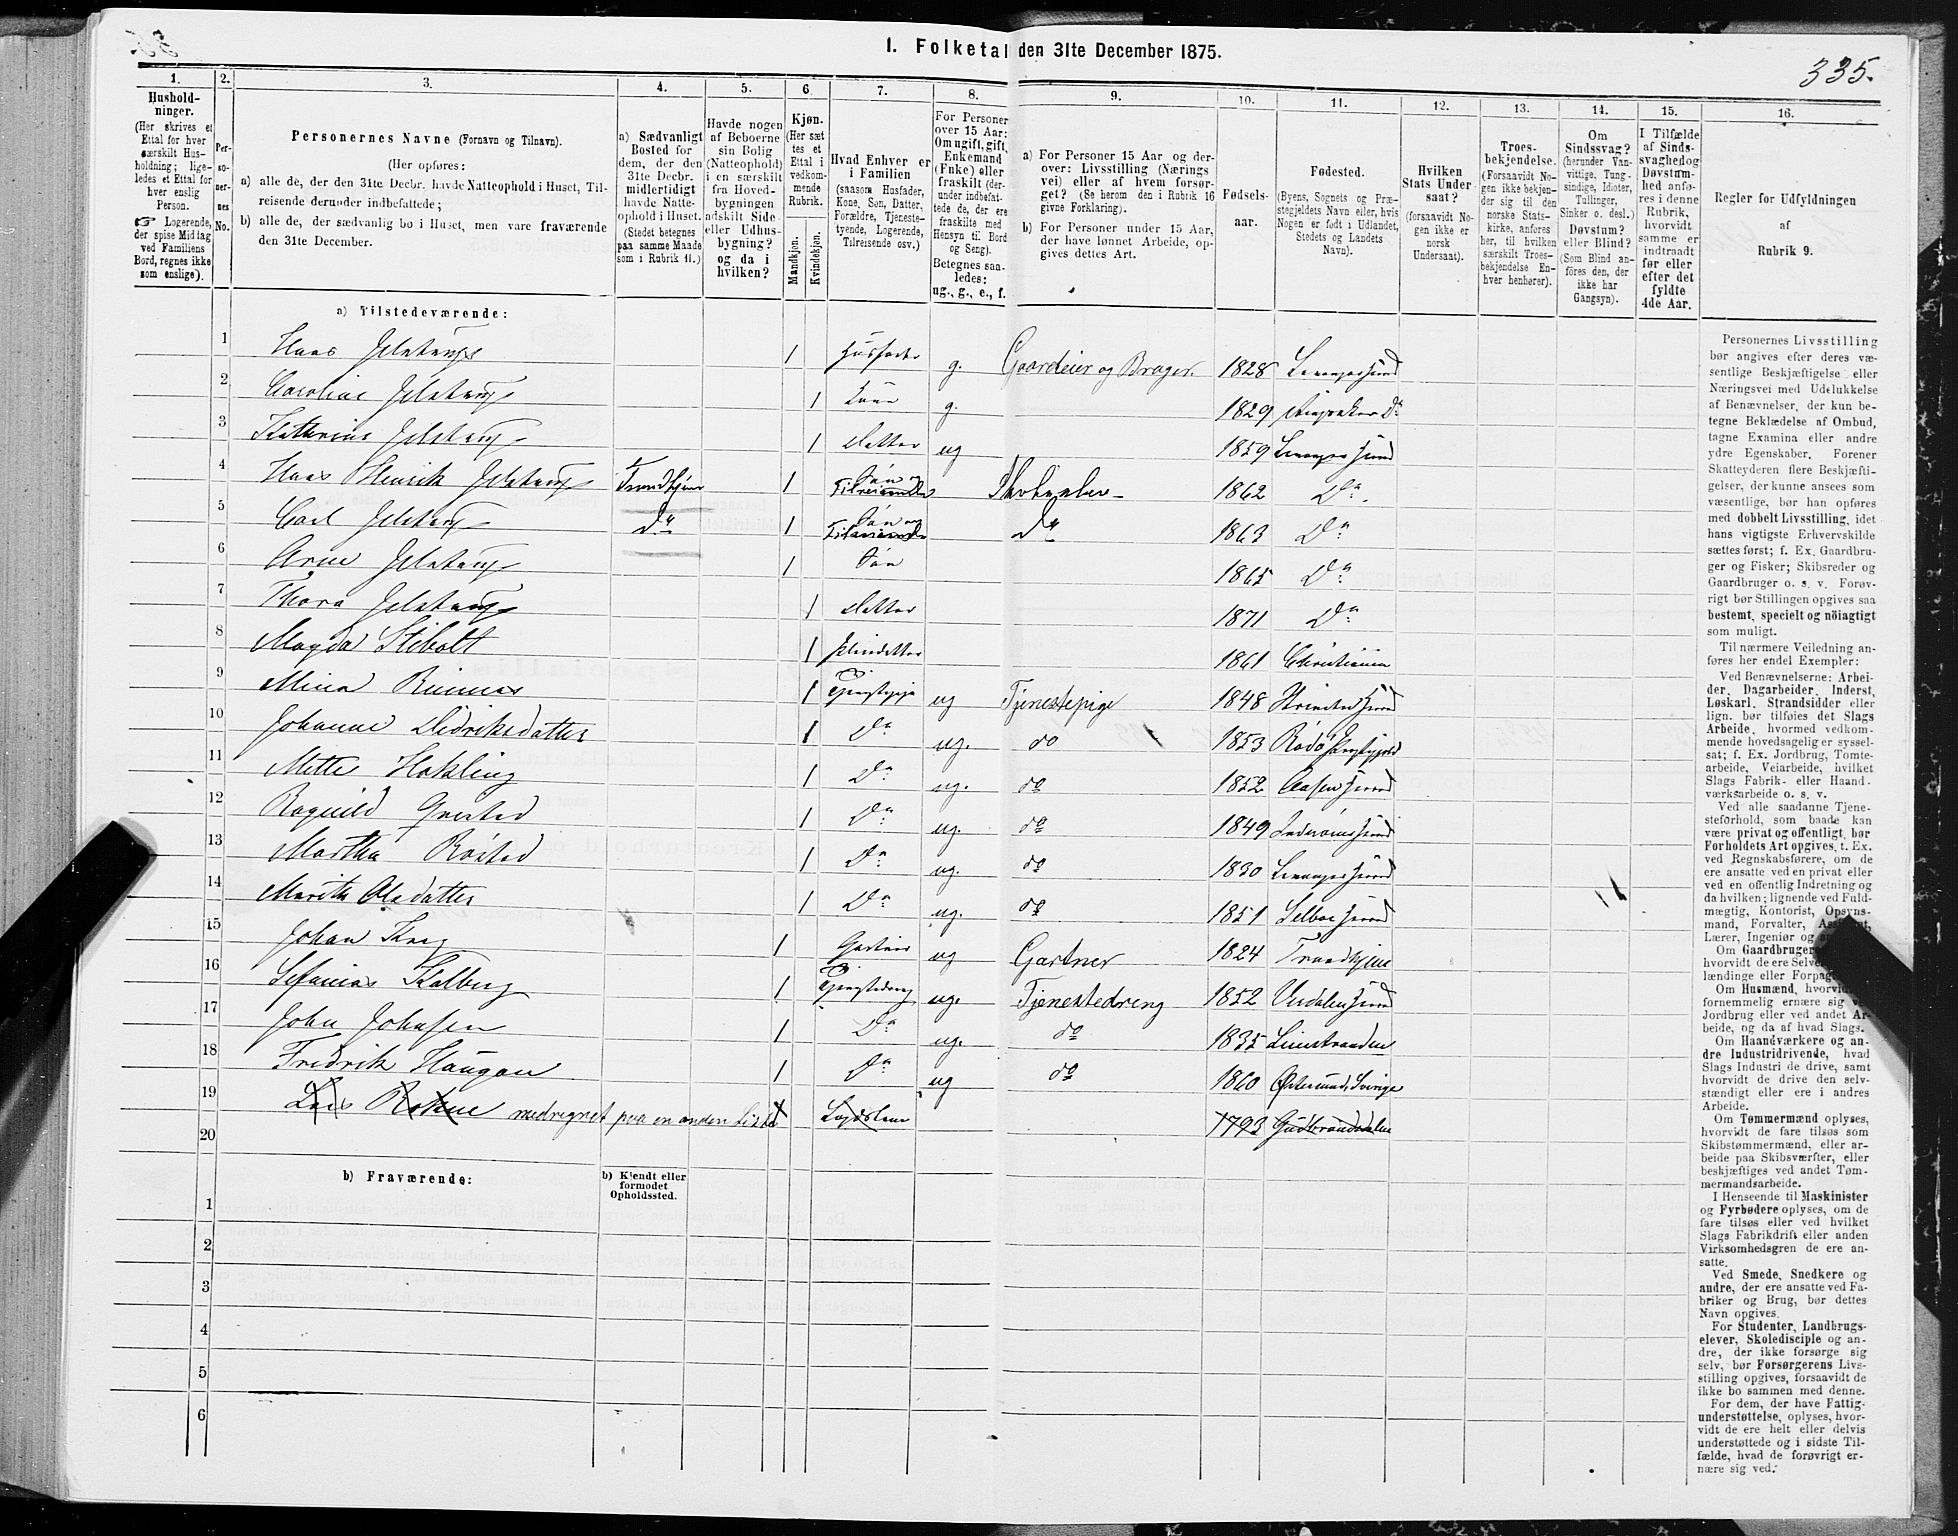 I. Folketal den 31te December 1875.
335.
1.
2.
3.
4.
5.
6.
7.
8.
9.
10.
11.
12.
13.
14.
15.
16.
Husholdninger.
(Her skrives et Ettal for hver særskilt Husholdning; ligeledes et Ettal for hver enslig Person.
☞ Logerende, der spise Middag ved Familiens Bord, regnes ikke som enslige).
Personernes No.
Personernes Navne (Fornavn og Tilnavn).
(Her opføres:
a) alle de, der den 31te Decbr. havde Natteophold i Huset, Tilreisende derunder indbefattede;
b) alle de, der sædvanlig bo i Huset, men vare fraværende den 31te December.
a) Sædvanligt Bosted for dem, der den 31te Decbr. midlertidigt havde Natteophold i Huset. (Stedet betegnes paa samme Maade som i Rubrik 11.)
Havde nogen af Beboerne sin Bolig (Natteophold) i en særskilt fra Hovedbygningen adskilt Side- eller Udhusbygning? og da i hvilken?
Kjøn. (Her sættes et Ettal i vedkommende Rubrik.
Mandkjøn.
Kvindekjøn.
Hvad Enhver er i Familien
(saasom Husfader, Kone, Søn, Datter, Forældre, Tjenestetyende, Logerende, Tilreisende osv.)
For Personer over 15 Aar: Om ugift, gift, Enkemand (Enke) eller fraskilt (derunder indbefattede de, der ere fraskilte med Hensyn til Bord og Seng).
Betegnes saaledes: ug., g., e., f.
a) For Personer 15 Aar og derover: Livsstilling (Næringsvei) eller af hvem forsørget? (Se herom den i Rubrik 16 givne Forklaring).
b) For Personer under 15 Aar, der have lønnet Arbeide, opgives dettes Art.
Fødselsaar.
Fødested.
(Byens, Sognets og Præstegjeldets Navn eller, hvis Nogen er født i Udlandet, Stedets og Landets Navn).
Hvilken Stats Undersaat?
(forsaavidt Nogen ikke er norsk Undersaat).
Troesbekjendelse.
(Forsaavidt Nogen ikke bekjender sig til den norske Statskirke, anføres her, til hvilken særskilt Troesbekjendelse Enhver henhører).
Om Sindssvag? (herunder Vanvittige, Tungsindige, Idioter, Tullinger, Sinker o. desl.) Døvstum? eller Blind? (Som Blind anføres den, der ikke har Gangsyn).
I Tilfælde af Sindssvaghed og Døvstumhed anføres i denne Rubrik, hvorvidt samme er indtraadt før eller efter det fyldte 4de Aar.
Regler for Udfyldningen af Rubrik 9.
a) Tilstedeværende:
1 Hans Jelstrup 1 Husfader g. Gaardeier og Bruger. 1828
2 Caroline Jelstrup 1 Kone g. 1829
3 Kathrine Jelstrup 1 Datter ug 1859
4 Hans Henrik Jelstrup Trondhjem 1 Søn Tilreisende 1862 Do.
5 Carl Jelstrup Do 1 Søn Tilreisende Do 1863 Do
6 Arne Jelstrup 1 Søn 1865 Do
7 Thora Jelstrup 1 Datter 1871 Do
8 Magda Stibolt 1 1861 Christiania
9 Mina 1 ug Tjenestepige 1848
10 Johanne Didriksdatter 1 Do ug. do 1853 Rødø
11 Mette Hokling 1 Do ug. do 1852
12 Ragnild 1 Do ug. do 1849
13 Martha Røstad 1 Do ug. do 1830
14 Marith Olsdatter 1 Do ug. do 1851
15 Johan Krog 1 Gartner ug Gartner 1824 Trondhjem
16 Kolberg 1 ug. Tjenestedreng 1852
17 John Johnsen 1 Do ug. do 1835 Leinstranden
18 Fredrik Haugan 1 Do ug do 1860 Østersund, Sverige
19 Lars Rokne medregnet paa en anden Liste 1793 Gudbrandsdalen
20
b) Fraværende:
b) Kjendt eller formodet Opholdssted.
1
2
3
4
5
6
Personernes Livsstilling
bør angives efter deres væ-
sentlige Beskjæftigelse eller
Næringsvei med Udelukkelse
af Benævnelser, der kun be-
tegne Beklædelse af Ombud,
tagne Examina eller andre
ydre Egenskaber. Forener
Skatteyderen flere Beskjæfti-
gelser, der kunne ansees som
væsentlige, bør han opføres
med dobbelt Livsstilling, idet
hans vigtigste Erhvervskilde
sættes først; f. Ex. Gaardbru-
ger og Fisker; Skibsreder og
Gaardbruger o. s. v. Forøv-
rigt bør Stillingen opgives saa
bestemt, specielt og nøiagtigt
som muligt.
Til nærmere Veiledning an-
føres her endel Exempler:
Ved Benævnelserne: Arbei-
der, Dagarbeider, Inderst,
Løskarl, Strandsidder eller
lign. bør tilføies det Slags
Arbeide, hvormed vedkom-
mende hovedsagelig er syssel-
sat; f. Ex. Jordbrug, Tomte-
arbeide, Veiarbeide, hvilket
Slags Fabrik- eller Haand-
værksarbeide o. s. v.
Ved alle saadanne Tjene-
steforhold, som baade kan
være privat og offentlig, bør
Forholdets Art opgives, t. Ex.
ved Regnskabsførere, om de
ere ansatte ved en privat eller
ved en offentlig Indretning og
da hvilken; lignende ved Fuld-
mægtig, Kontorist, Opsyns-
mand, Forvalter,
Lærer, Ingeniør og
Om Gaardbrugere
hvorvidt de ere Selv
lændinge eller
Om Husmænd,
fornemmelig ernære sig
Jordbrug eller ved andet Ar-
beide, og da af hvad Slags.
Om Haandværkere og an-
dre Industridrivende, hvad
Slags Industri de drive, samt
hvorvidt de drive den selv-
stændigt eller ere i andres
Arbeide.
Om Tømmermænd oplyses,
hvorvidt de fare tilsøs som
Skibstømmermænd, eller ar-
beide paa Skibsværfter, eller
beskjæftiges ved andet Tøm-
mermandsarbeide.
I Henseende til Maskinister
og Fyrbødere oplyses, om de
fare tilsøs eller ved hvilket
Slags Fabrikdrift eller anden
Virksomhedsgren de ere an-
satte.
Ved Smede, Snedkere og
andre, der ere ansatte ved Fa-
briker og Brug, bør dettes
Navn opgives.
For Studenter, Landbrugs-
elever, Skoledisciple og an-
dre, der ikke forsørge sig
selv, bør Forsørgerens Livs-
stilling opgives, forsaavidt de
ikke bo sammen med denne.
For dem, der have Fattig-
understøttelse, oplyses, hvor-
vidt de ere helt eller delvis
understøttede og i sidste Til-
fælde, hvad de forøvrigt er-
nære sig ved.